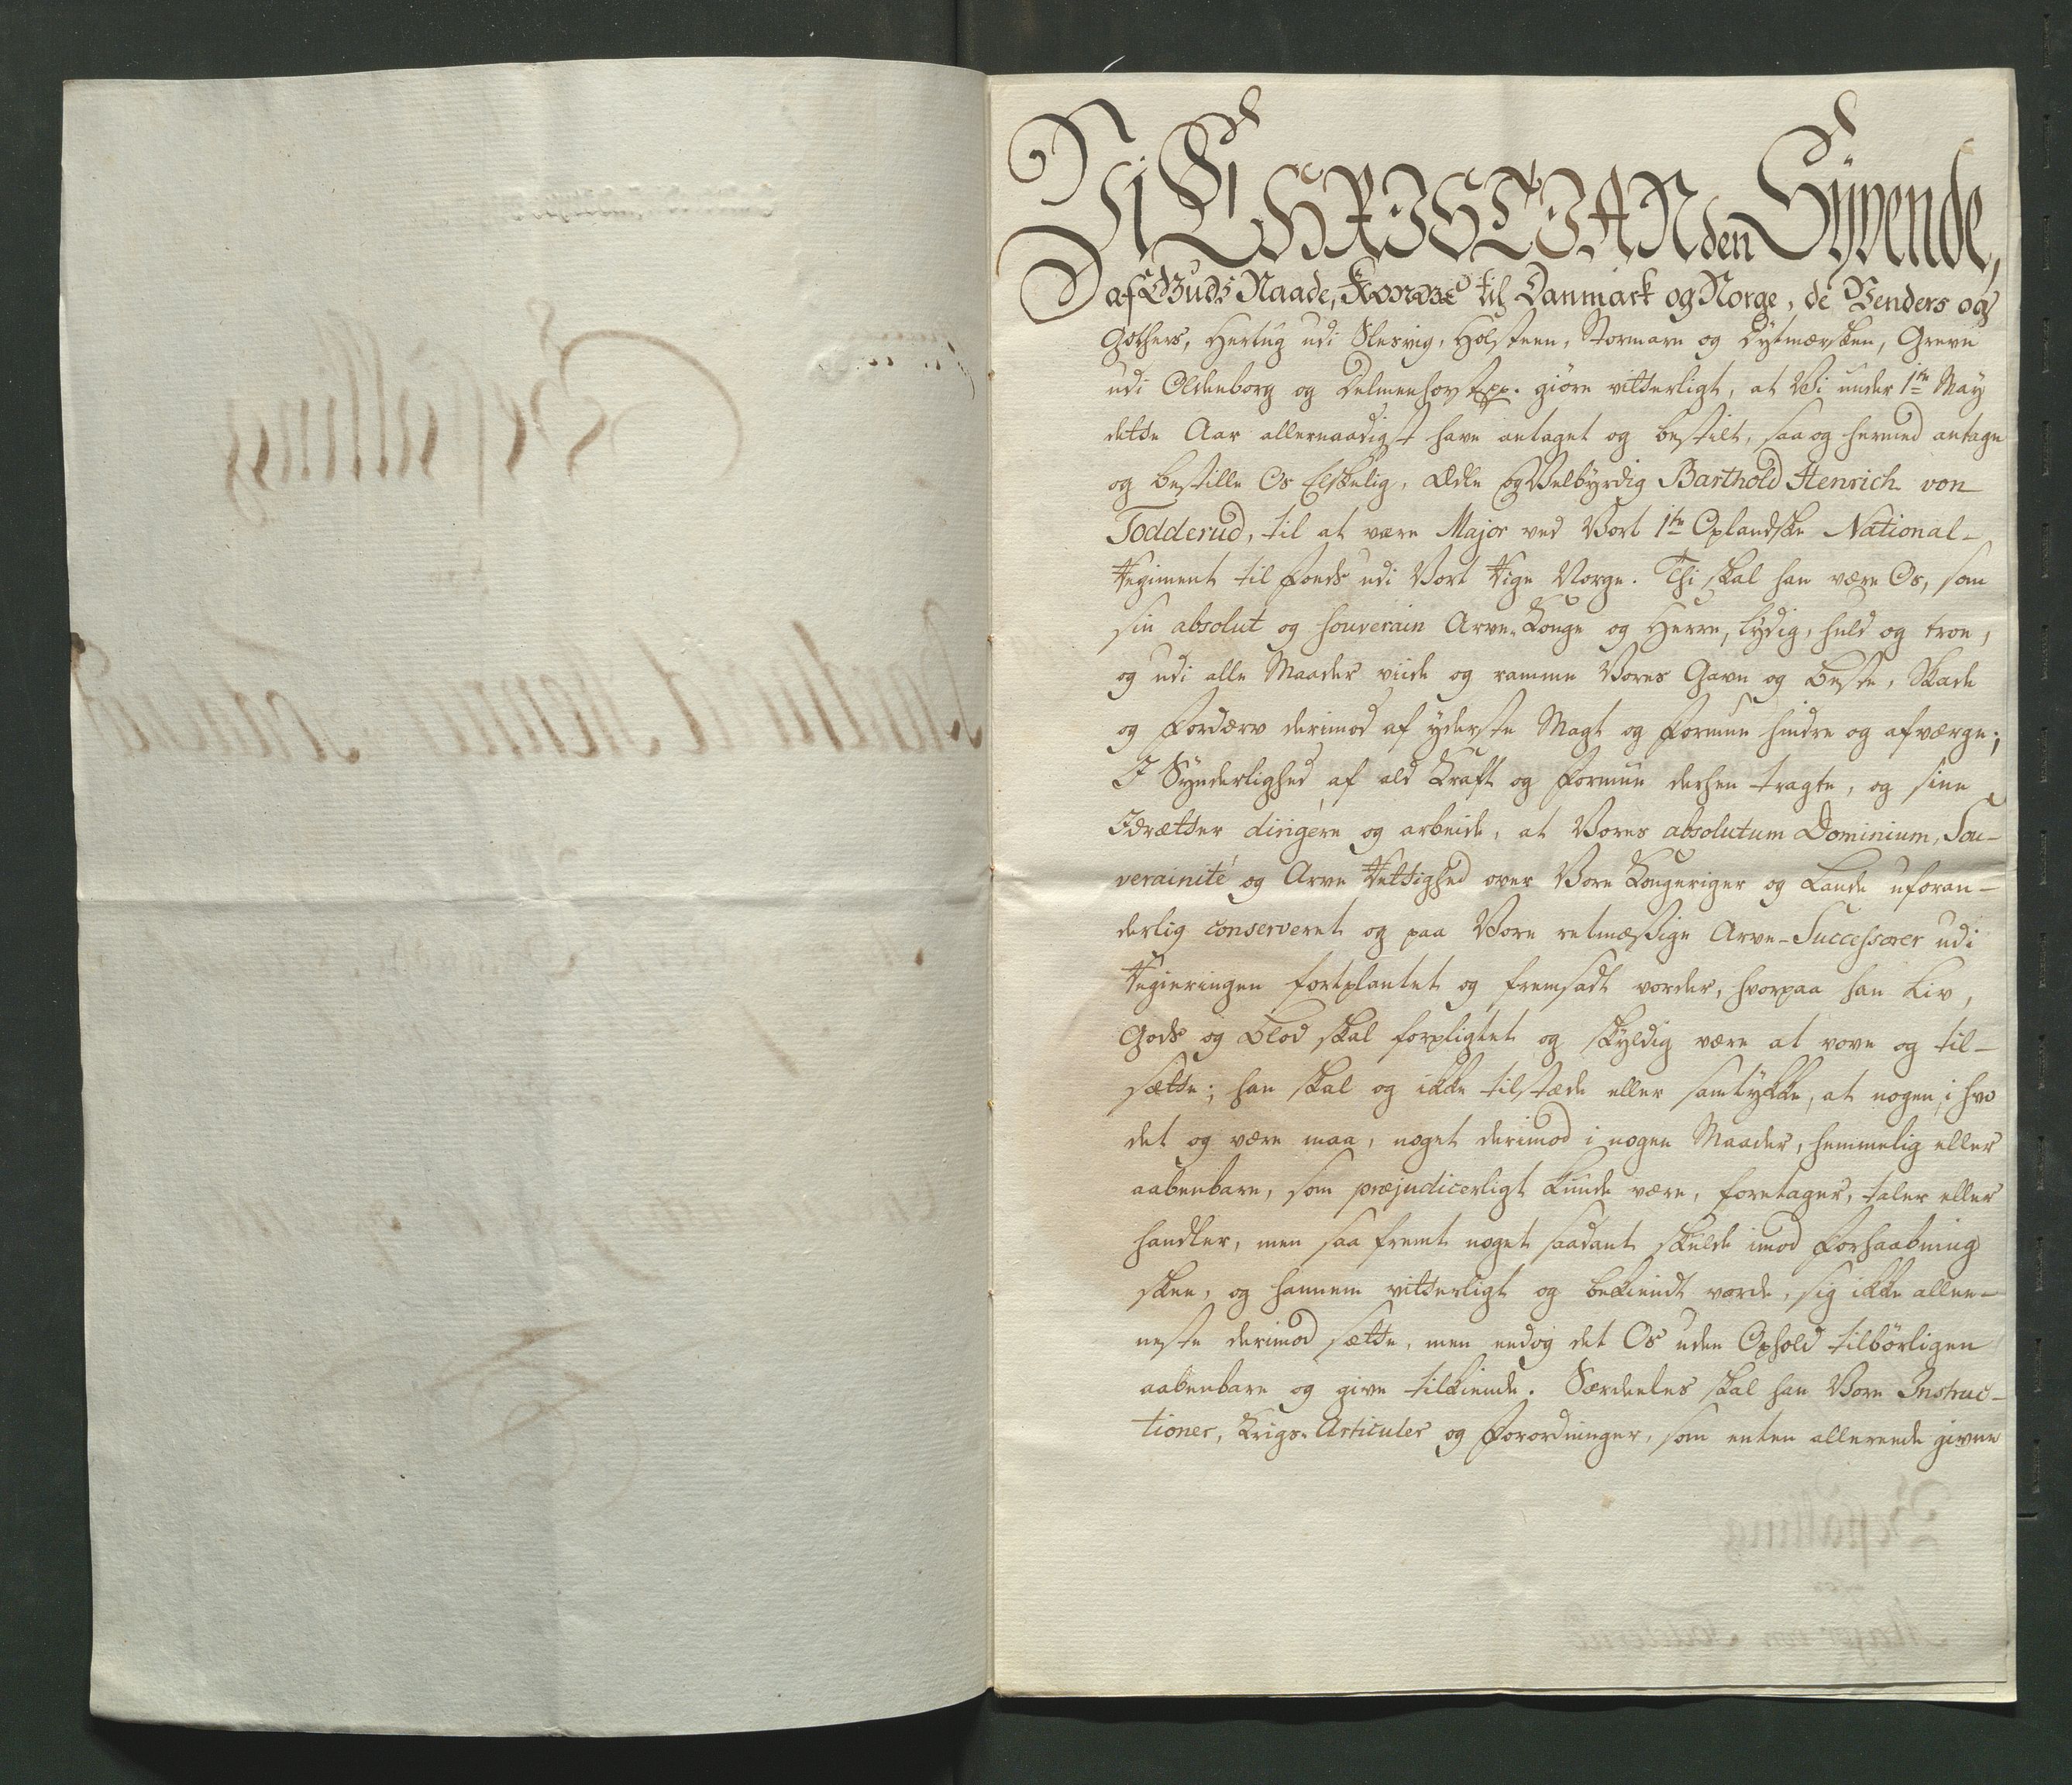 Vi CHRISTIAN den Syvende,
af Guds Naade, Konge til Danmark og Norge, de Venders og
Gothers, Hertug udi Slesvig, Holsteen, Stormarn og Dytmersken, Greve
udi Oldenborg og Delmenhorst pp. giøre vitterligt, at Vi under 1te May
dette Aar allernaadigst have antaget og bestilt, saa og hermed antage
og bestille Os Elskelig, Ædle og Velbyrdig Barthold Henrich von
Todderud, til at være Major ved Vort 1te Oplandske National-
Regiment til Foeds udi Vort Rige Norge. Thi skal han være Os, som
sin absolut og souverain Arve-Konge og Herre, lydig, huld og troe,
og udi alle Maader viide og ramme Vores Gavn og Beste, Skade
og Fordærv derimod af yderste Magt og Formue hindre og afværge;
I Synderlighed af ald Kraft og Formue derhen tragte, og sine
Idrætter dirigere og arbeide, at Vores absolutum Dominium, Sou-
verainité og Arve Rettighed over Vore Kongeriger og Lande uforan-
derlig conserveret og paa Vore retmæssige Arve-Successorer udi
Regieringen fortplantet og fremsadt vorder, hvorpaa han Liv,
Gods og Blod skal forpligtet og skyldig være at vove og til-
sætte; han skal og ikke tilstæde eller samtykke, at nogen, i hvo
det og være maa, noget derimod i nogen Maader, hemmelig eller
aabenbare, som præjudicerligt kunde være, foretager, taler eller
handler, men saa fremt noget saadant skulde imod Forhaabning
skee, og hannem vitterligt og bekiendt vorde, sig ikke allee-
neste derimod sætte, men endog det Os uden Ophold tilbørligen
aabenbare og give tilkiende. Særdeeles skal han Vore Instruc-
tioner, Krigs-Articuler og Forordninger, som enten allerede givne